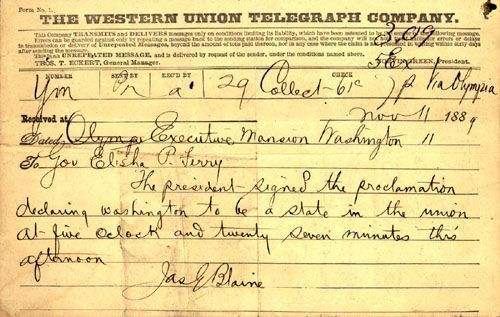 Form No. 1.
THE WESTERN UNION TELEGRAPH COMPANY.
This Company TRANSMITS and DELIVERS messages only on conditions limiting its liability, which have been assented to by the sender of the following message.
Errors can be guarded against only by repeating a message back to the sending station for comparison, and the company will not hold itself liable for errors or delays
in transmission or delivery of Unrepeated Messages, beyond the amount of tolls paid thereon, nor in any case where the claim is not presented in writing within sixty days
after sending the message.
This is an UNREPEATED MESSAGE, and is delivered by request of the sender, under the conditions named above.
THOS. T. ECKERT, General Manager. NORVIN GREEN, President.
NUMBER SENT BY REC'D BY CHECK
Ym a 29 Collect 61c Via Olympia
Received at Nov 11 1889
Dated, Olympia Executive Mansion Washington 11
To Gov Elisha P. Ferry
The president signed the proclamation
declaring washington to be a state in the union
at five oclock and twenty seven minutes this
afternoon
Jas G Blaine